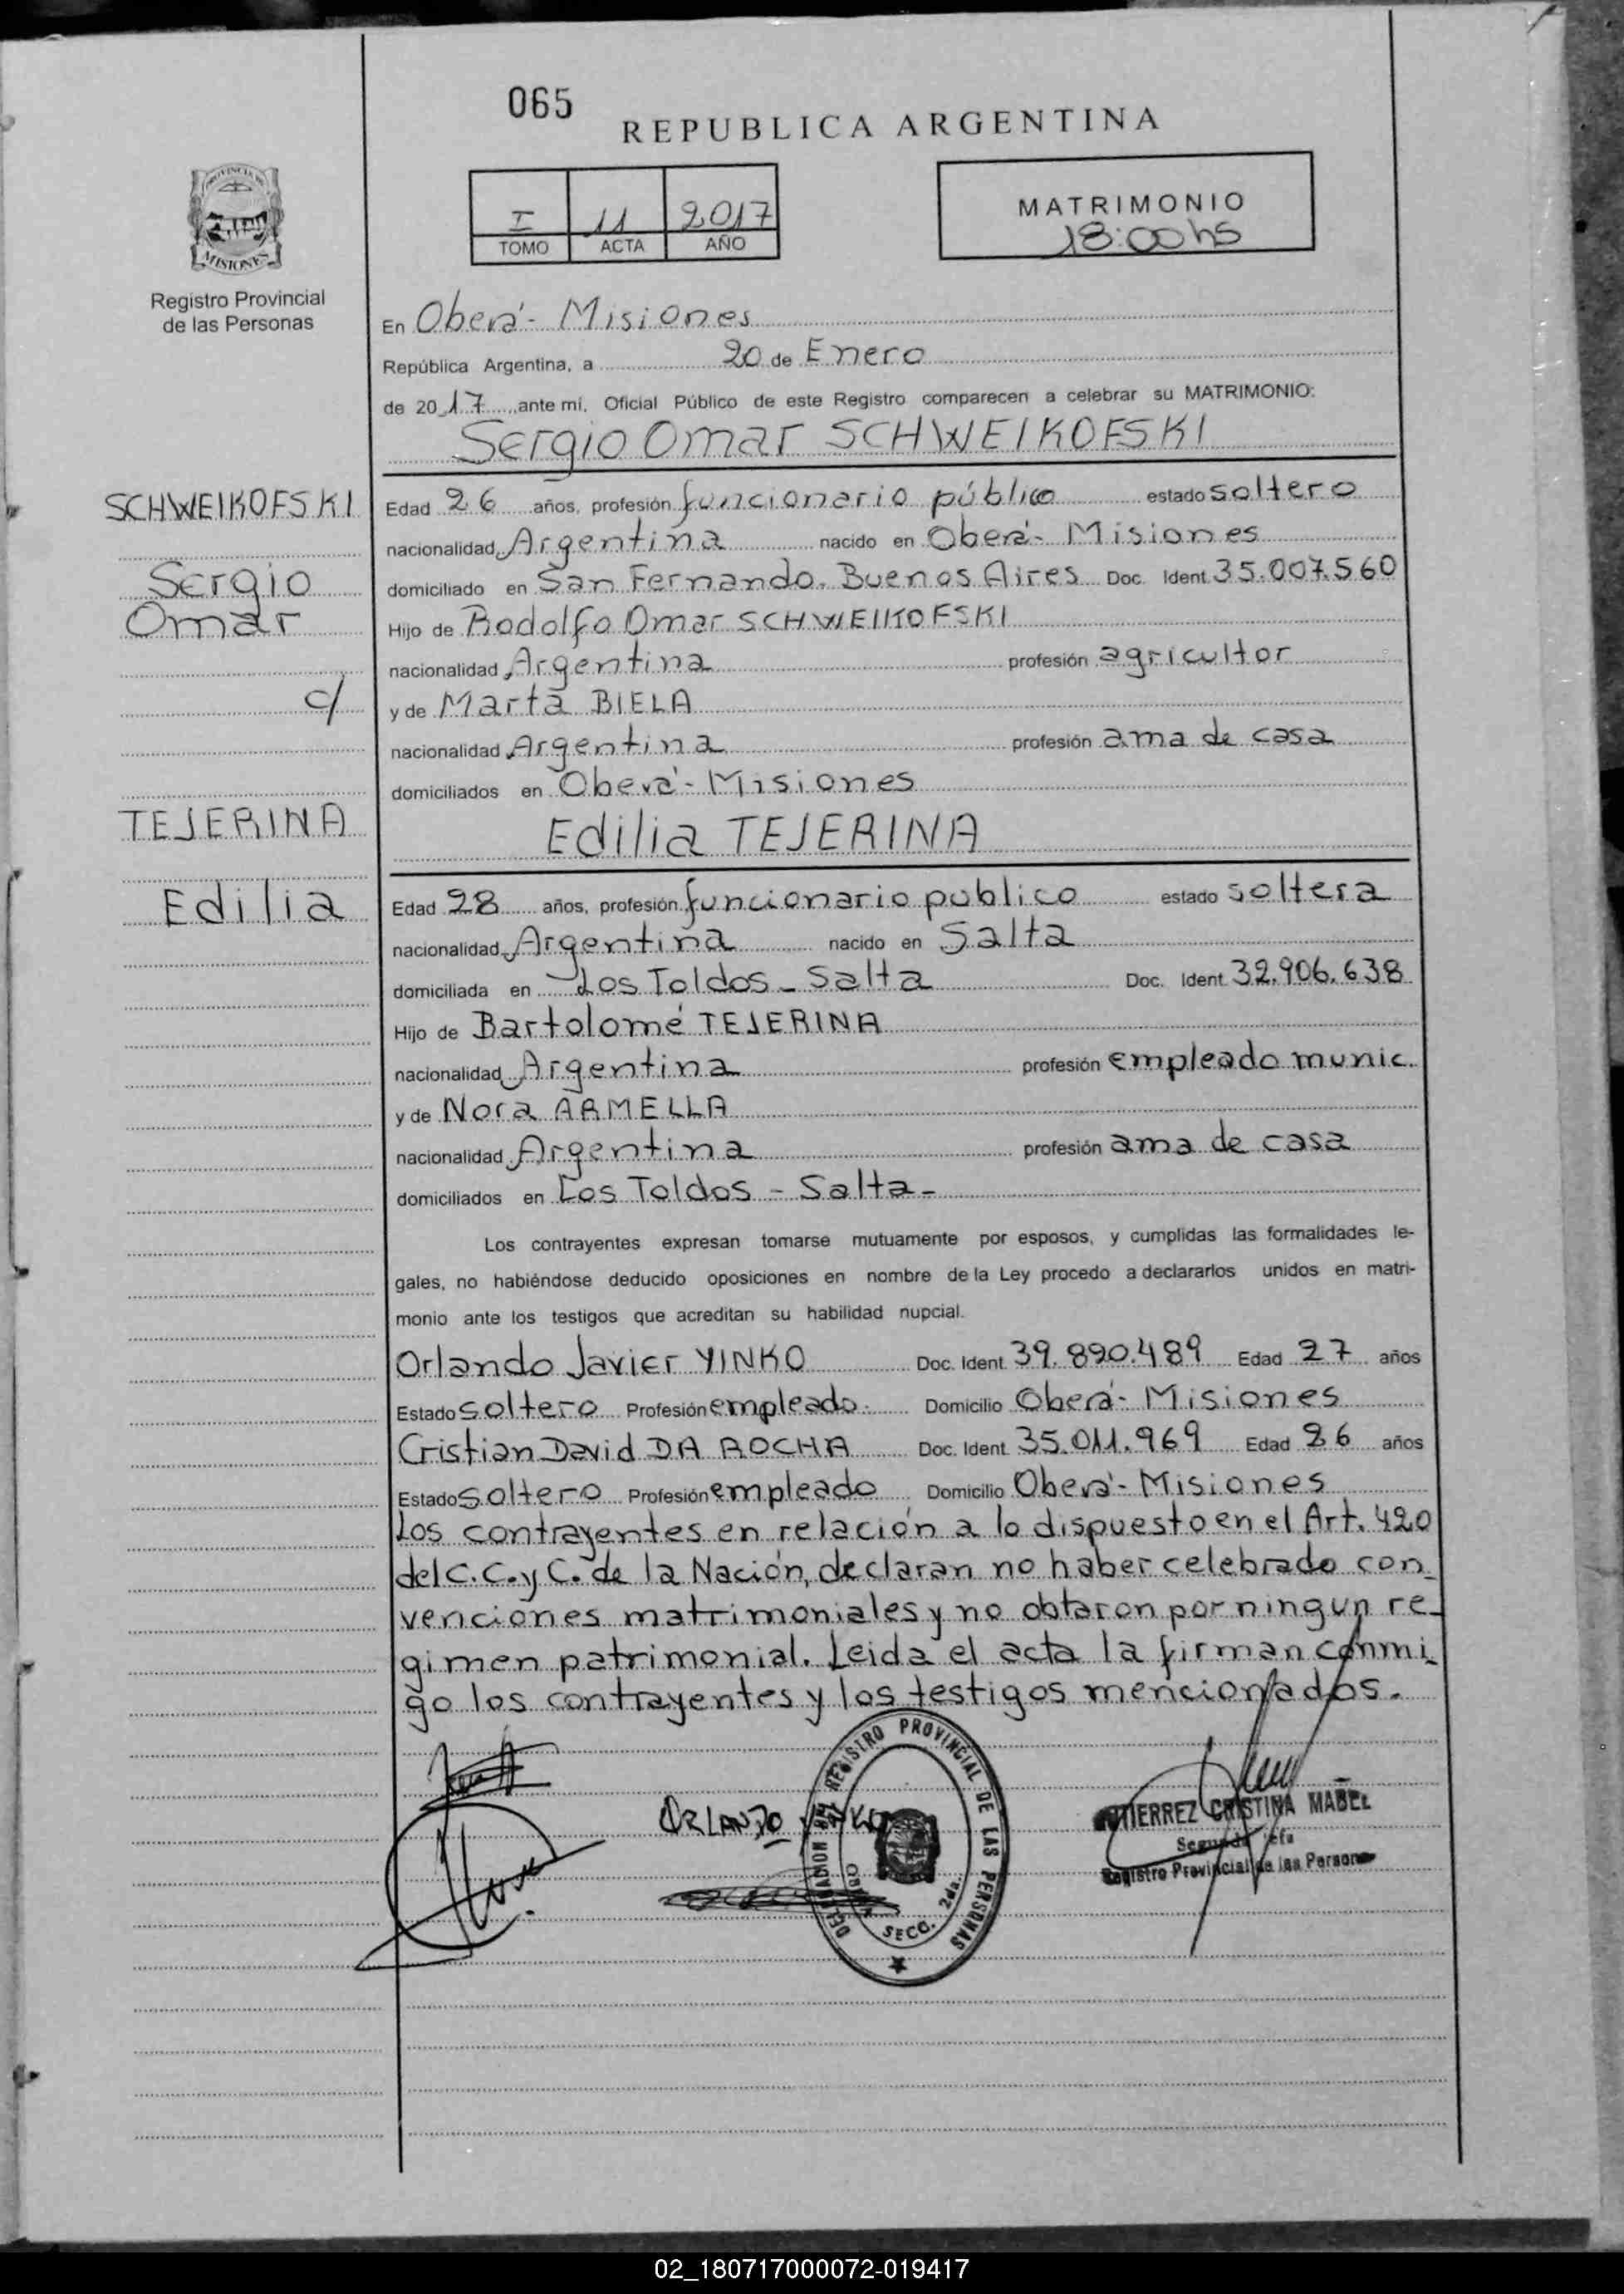 065
REPUBLICA ARGENTINA
PROVINCIA DE
MISIONES
Registro Provincial
de las Personas
I 11 2017
TOMO ACTA AÑO
MATRIMONIO
18:00hs
En Oberá - Misiones
República Argentina, a 20 de Enero
de 2017 ante mí, Oficial Público de este Registro comparecen a celebrar su MATRIMONIO:
Sergio Omar SCHWEIKOFSKI
SCHWEIKOFSKI
Sergio
Omar
c/
TEJERINA
Edilia
Edad 26 años, profesión funcionario público estado soltero
nacionalidad Argentina nacido en Oberá - Misiones
domiciliado en San Fernando. Buenos Aires Doc. Ident. 35.007.560
Hijo de Rodolfo Omar SCHWEIKOFSKI
nacionalidad Argentina profesión agricultor
y de Marta BIELA
nacionalidad Argentina profesión ama de casa
domiciliados en Oberá - Misiones
Edilia TEJERINA
Edad 28 años, profesión funcionario publico estado soltera
nacionalidad Argentina nacido en Salta
domiciliada en Los Toldos - Salta Doc. Ident. 32.906.638
Hijo de Bartolomé TEJERINA
nacionalidad Argentina profesión empleado munic.
y de Nora ARMELLA
nacionalidad Argentina profesión ama de casa
domiciliados en Los Toldos - Salta -
Los contrayentes expresan tomarse mutuamente por esposos, y cumplidas las formalidades le-
gales, no habiéndose deducido oposiciones en nombre de la Ley procedo a declararlos unidos en matri-
monio ante los testigos que acreditan su habilidad nupcial.
Orlando Javier YINKO Doc. Ident. 39.820.489 Edad 27 años
Estado soltero Profesión empleado. Domicilio Oberá - Misiones
Cristian David DA ROCHA Doc. Ident. 35.011.969 Edad 26 años
Estado soltero Profesión empleado Domicilio Oberá - Misiones
Los contrayentes en relación a lo dispuesto en el Art. 420
del C.C.y C. de la Nación, declaran no haber celebrado con_
venciones matrimoniales y no obtaron por ningun re_
gimen patrimonial. Leida el acta la firman conmi_
go los contrayentes y los testigos mencionados.
ORLANDO
DELEGACION DEL REGISTRO PROVINCIAL DE LAS PERSONAS
SECC. 2da.
GUTIERREZ CRISTINA MABEL
Segunda Jefa
Registro Provincial de las Personas
02_180717000072-019417